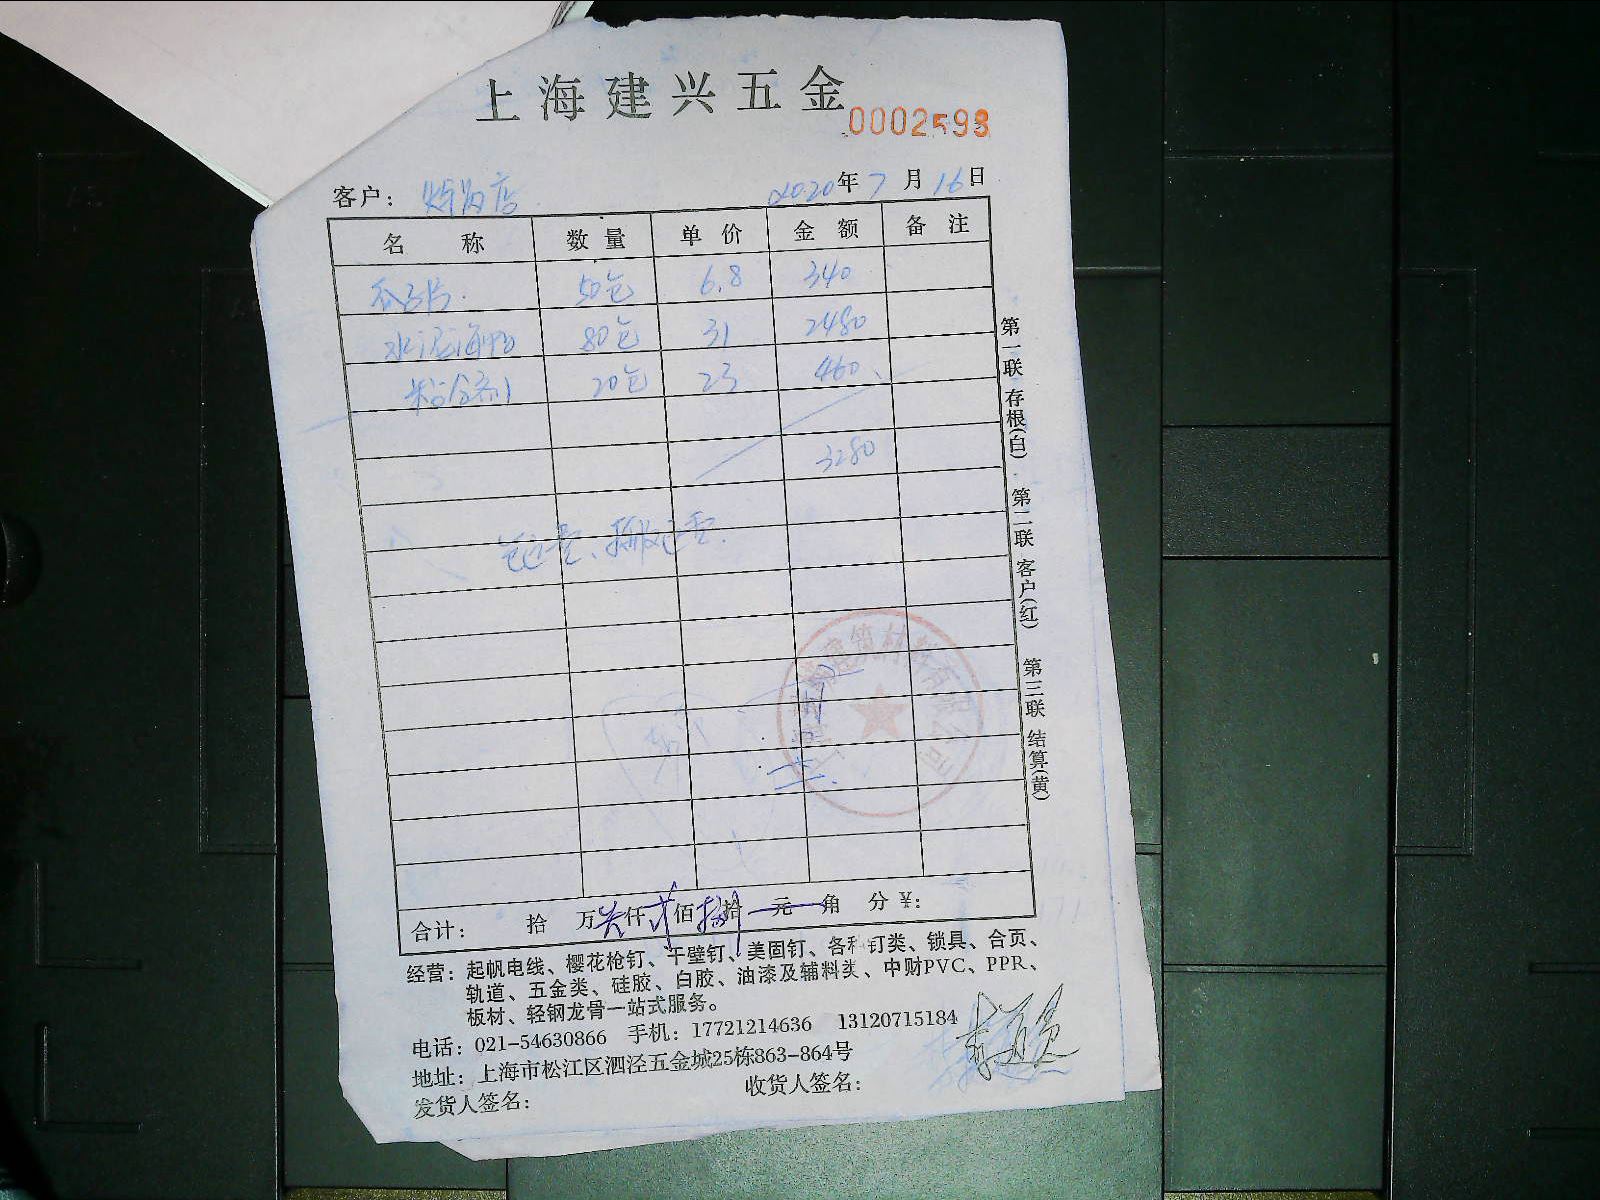 上海建兴五金
0002598
客户： 店 2020年7月16日
名称 数量 单价 金额 备注
瓜子片 50包 6.8 340
水泥海螺 80包 31 2480
粘合剂 20包 23 460
3280
合计： 拾 万 叁仟 贰佰 捌拾 元 角 分 ￥：
第一联 存根(白) 第二联 客户(红) 第三联 结算(黄)
建筑材料有限公司
经营：起帆电线、樱花枪钉、干壁钉、美固钉、各种钉类、锁具、合页、
轨道、五金类、硅胶、白胶、油漆及辅料类、中财PVC、PPR、
板材、轻钢龙骨一站式服务。
电话：021-54630866 手机：17721214636 13120715184
地址：上海市松江区泗泾五金城25栋863-864号
发货人签名： 收货人签名：